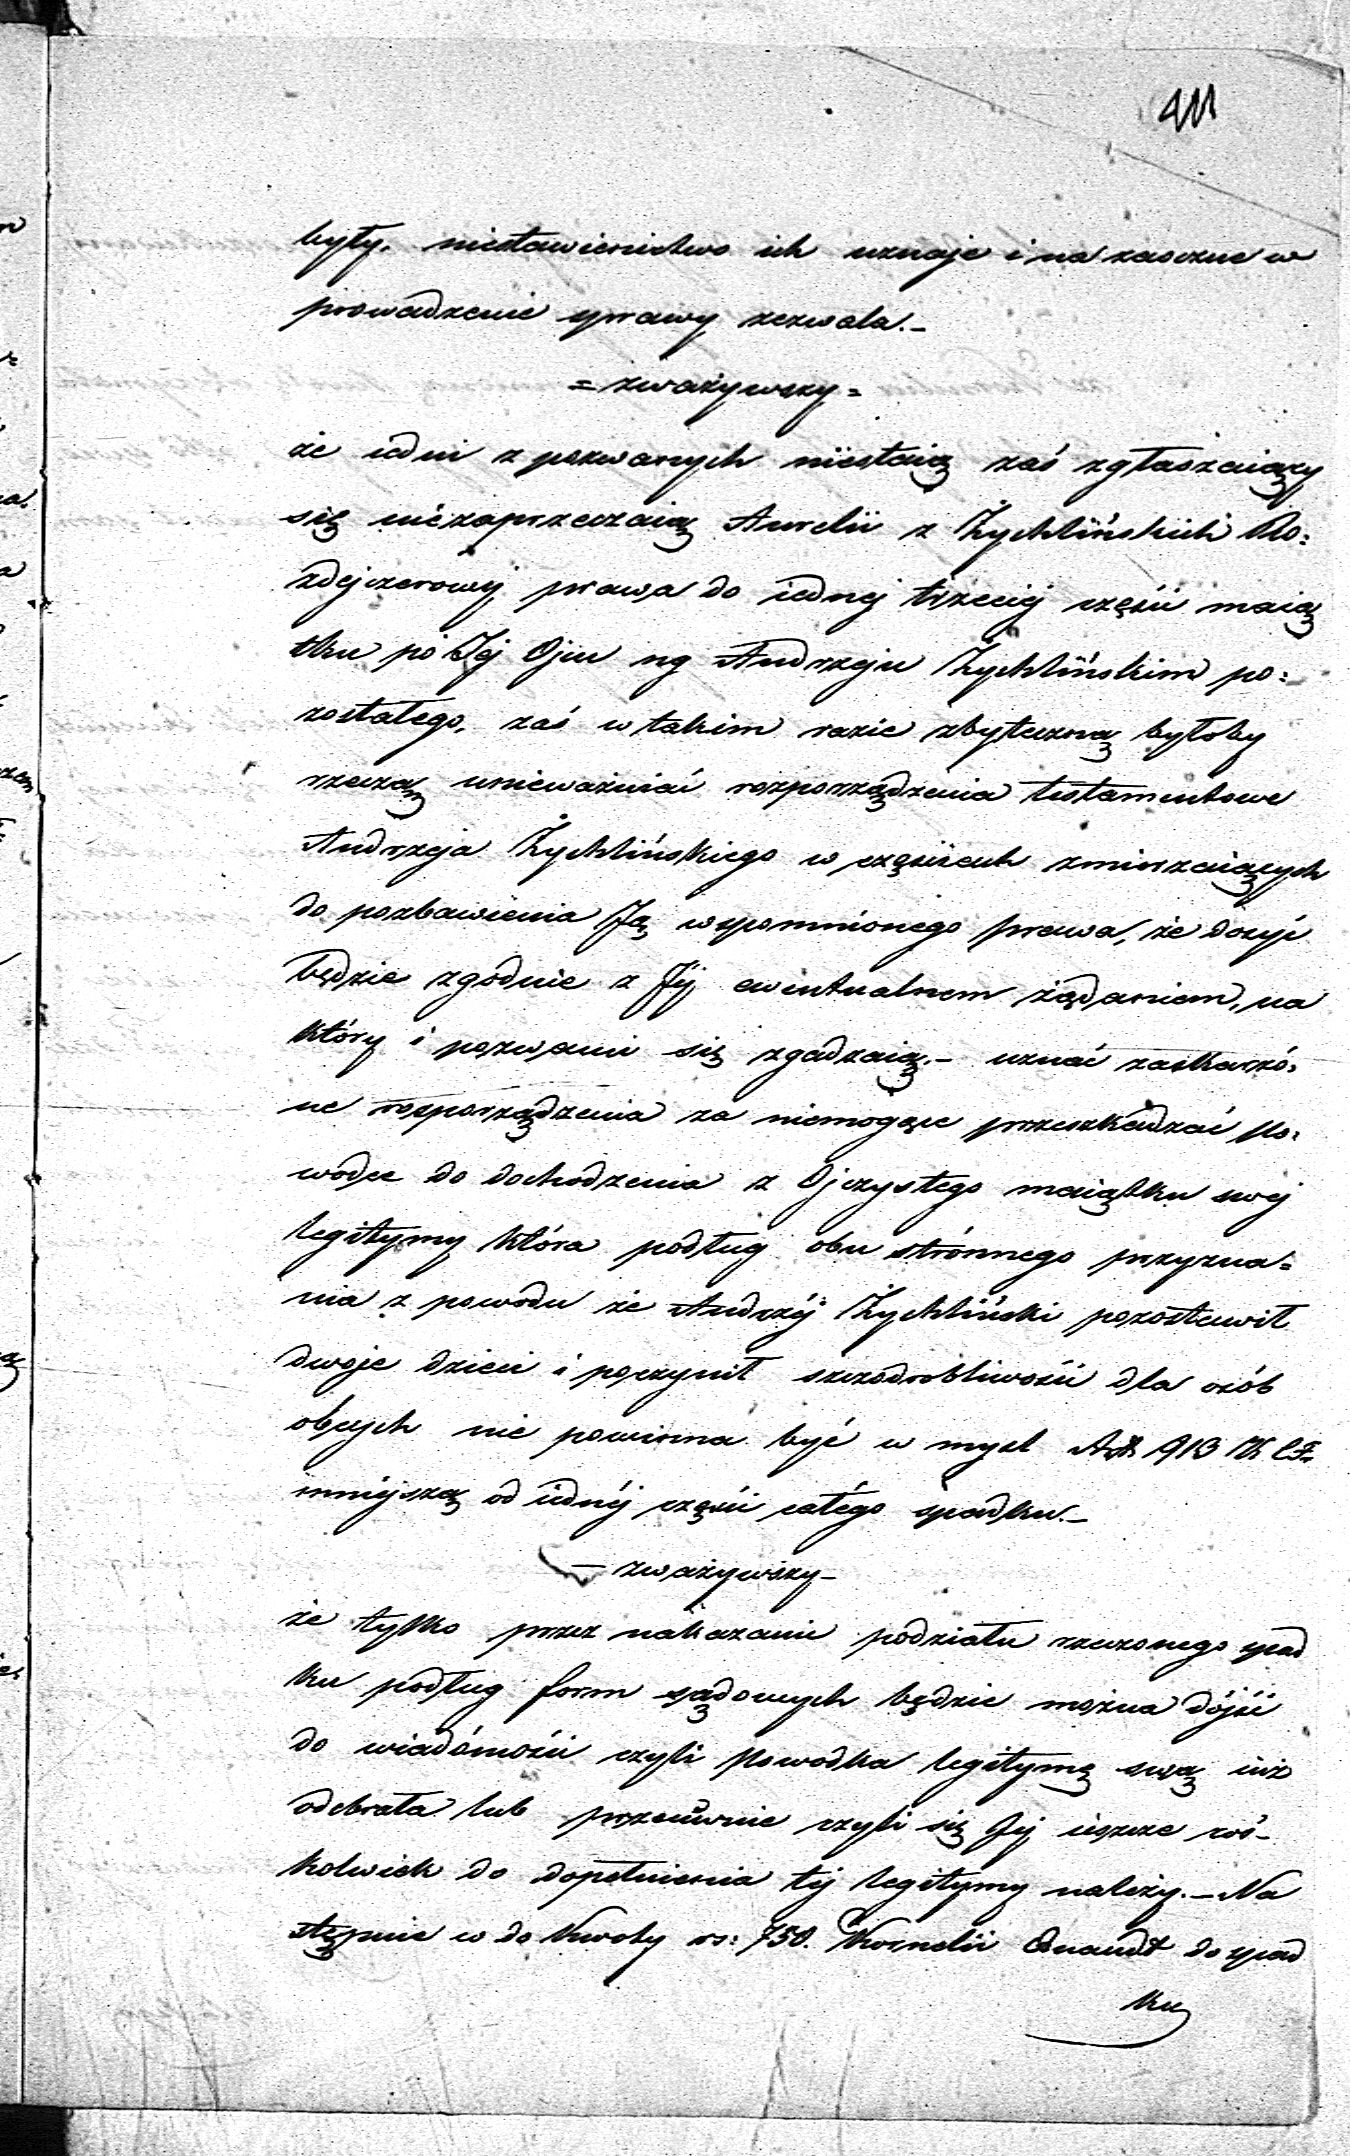 411
były. niestawienictwo ich uznaje i na zaoczne w
prowadzenie sprawy zezwala.-
= zważywszy =
że iedni z pozwanych niestaią zaś zgłaszaiący
się niezaprzeczaią Aurelii z Żychlińskich Ro=
zdejczerowej prawa do iednej trzeciej części maią
tku po Jej Ojcu ng Andrzeju Żychlińskim po=
zostałego, zaś w takim razie zbyteczną byłoby
rzeczą unieważniać rozporządzenia testamentowe
Andrzeja Żychlińskiego w częściach zmierzaiących
do pozbawienia Ją wspomnionego prawa, że dosyć
będzie zgodnie z Jej ewentualnem żądaniem, na
który i pozwani się zgadzaią.- uznać zaskarżo=
ne rosporządzenia za niemogące przeszkadzać Po=
wodce do dochodzenia z Ojczystego maiątku swej
legitymy która podług obu stronnego przyzna=
nia z powodu że Andrzéj Żychliński pozostawił
dwoje dzieci i poczynił szczodrobliwości dla osób
obcych nie powinna być w myśl Art 913 K C F.
mniejszą od iednéj części całégo spadku.-
- zważywszy -
że tylko przez nakazanie podziału rzeczonego spad
ku podług form sądowych będzie można dójść
do wiadomości czyli Powodka legitymę swą iuż
odebrała lub przeciwnie czyli się Jej ieszcze coś-
kolwiek do dopełnienia tej legitymy należy.- Na
stępnie co do kwoty rs: 750. Kornelii Quandt do spad
ku